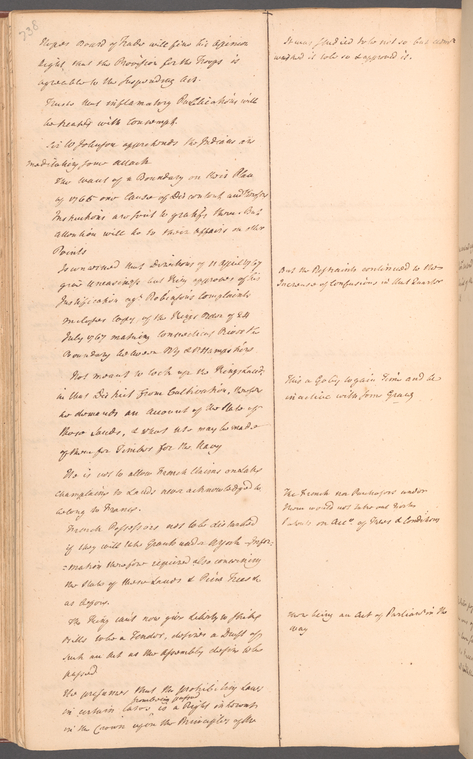 738
Hopes Board of Trade will find his opinion
right that the Provision for the Troops is
agreeable to the Suspending Act.
Trusts that inflamatory Publications will
be treated with Contempt.
Sir W Johnson apprehends the Indians are
meditating some attack
The want of a Boundary on their Plan
of 1765 one Cause of Discontent and
Instructions are sent to gratify them. But
attention will be to their Affairs on other
Points
Is concerned that Directions of 11 April 1767
give uneasiness, but King approves of his
Justification agt Robinsons Complaints
Incloses Copy of the Kings Order of 24
July 1767 making
Boundary between NY & N Hampshire
Not meant to lock up the Kings Lands
in that District from Cultivation, therefore
he demands an Account of the State of
those Lands, & what use may be made
of them for Timber for the Navy
He is not to allow French Claims on Lake
Champlain to Lands never acknowledged to
belong to France.
French Possessions not to be disturbed
if they will take Grants under NYork Infor=
=mation therefore required also concerning
the State of these Lands & Pine Trees &
as before.
The King can't now give Liberty to strike
Bills to be a Tender, desires a Draft of
such an Act as the Assembly desire to be
passed
He presumes that the prohibiting Laws
in certain Cases from being passed is a Right inherent
in the Crown upon the Principles of the
It was studied to be not so but
wished it to be so & approved it.
But the Restraints continued to the
Increase of Confusions in that Quarter
This a Goby to gain Time and be
inactive with some Grace
The French nor Purchasers under
them would not take out New York
Patents on Acct of Fees & Conditions
there being an Act of Parliamt in the
way